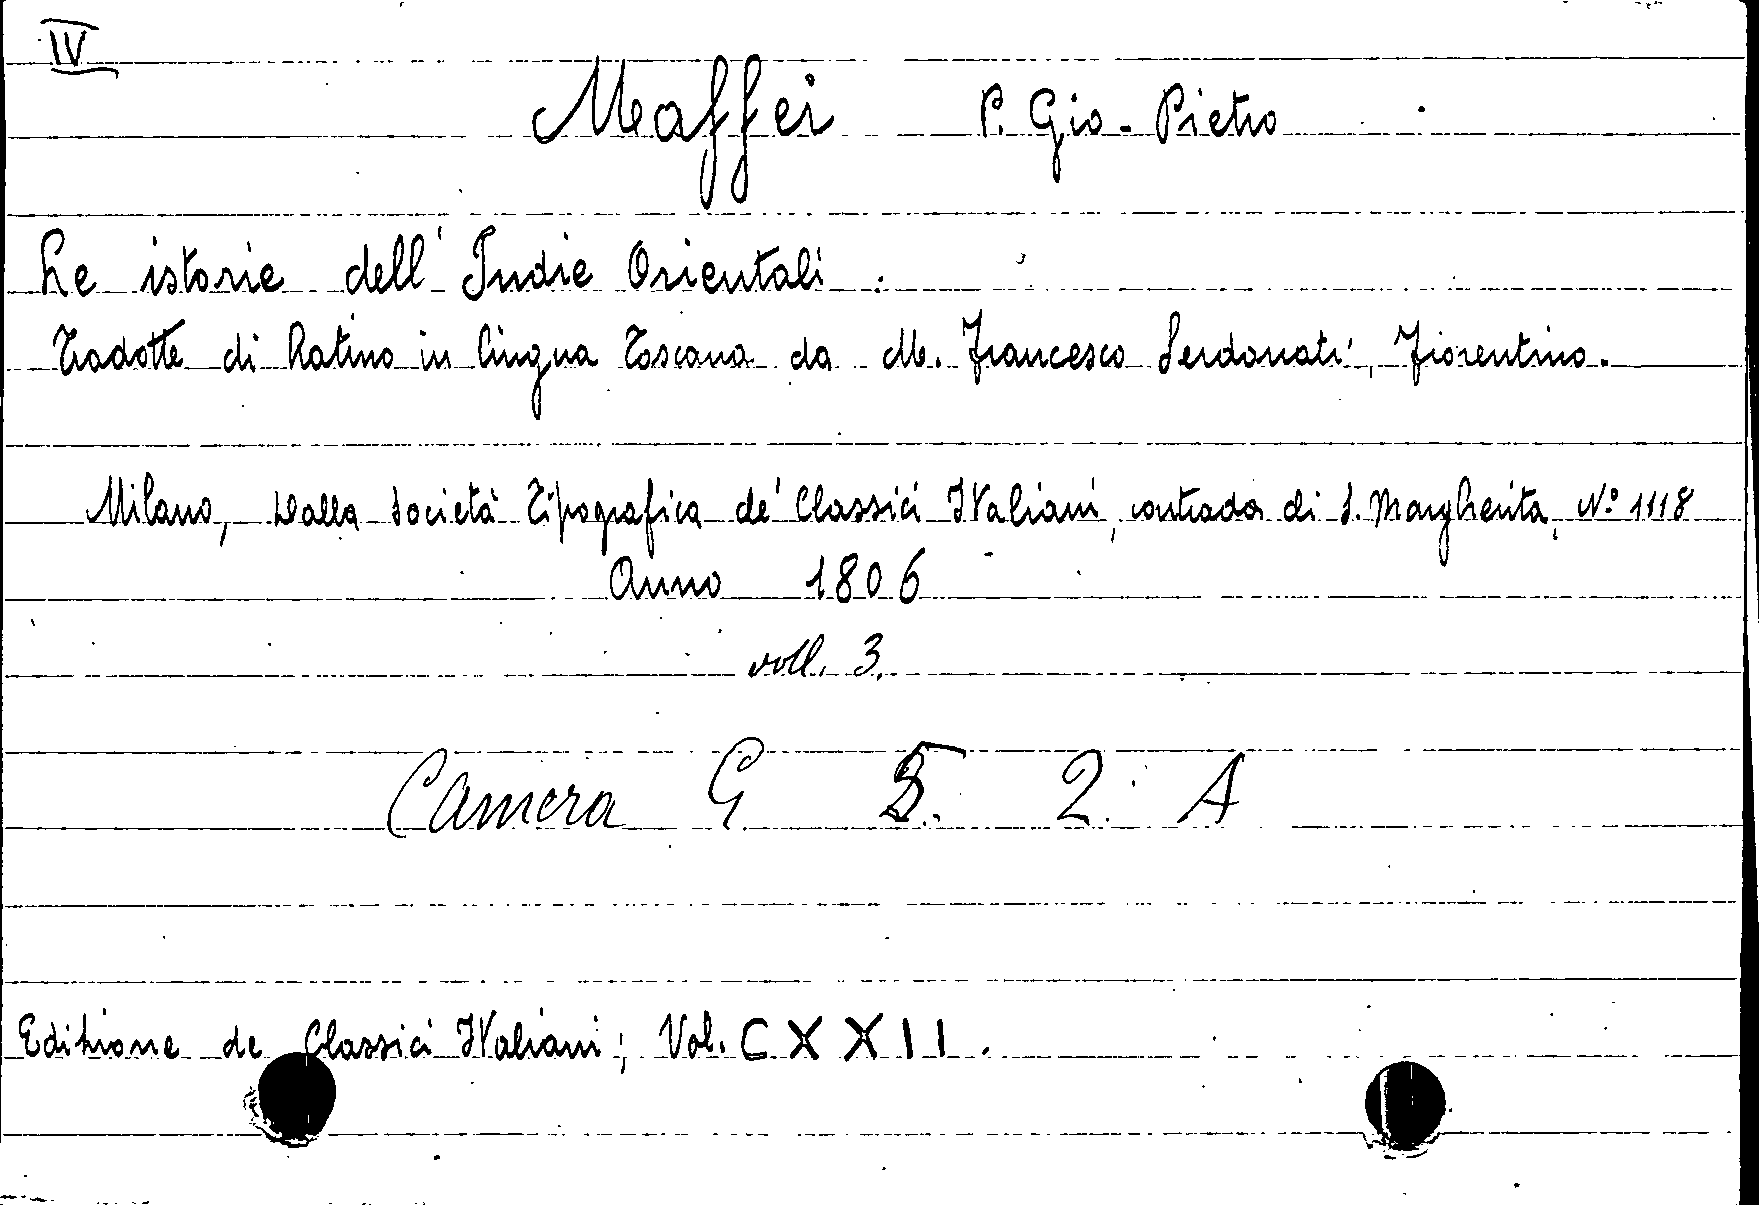 IV
Maffei P. Gio-Pietro
Le istorie dell'Indie Orientali.
Tradotte di Latino in lingua Toscana da M. Francesco Serdonati, Fiorentino.
Milano, Dalla Società Tipografica de' Classici Italiani, contrada di S. Margherita, N.° 1118
Anno 1806
voll. 3.
Camera G 5. 2. A
Edizione de Classici Italiani; Vol. CXXII.